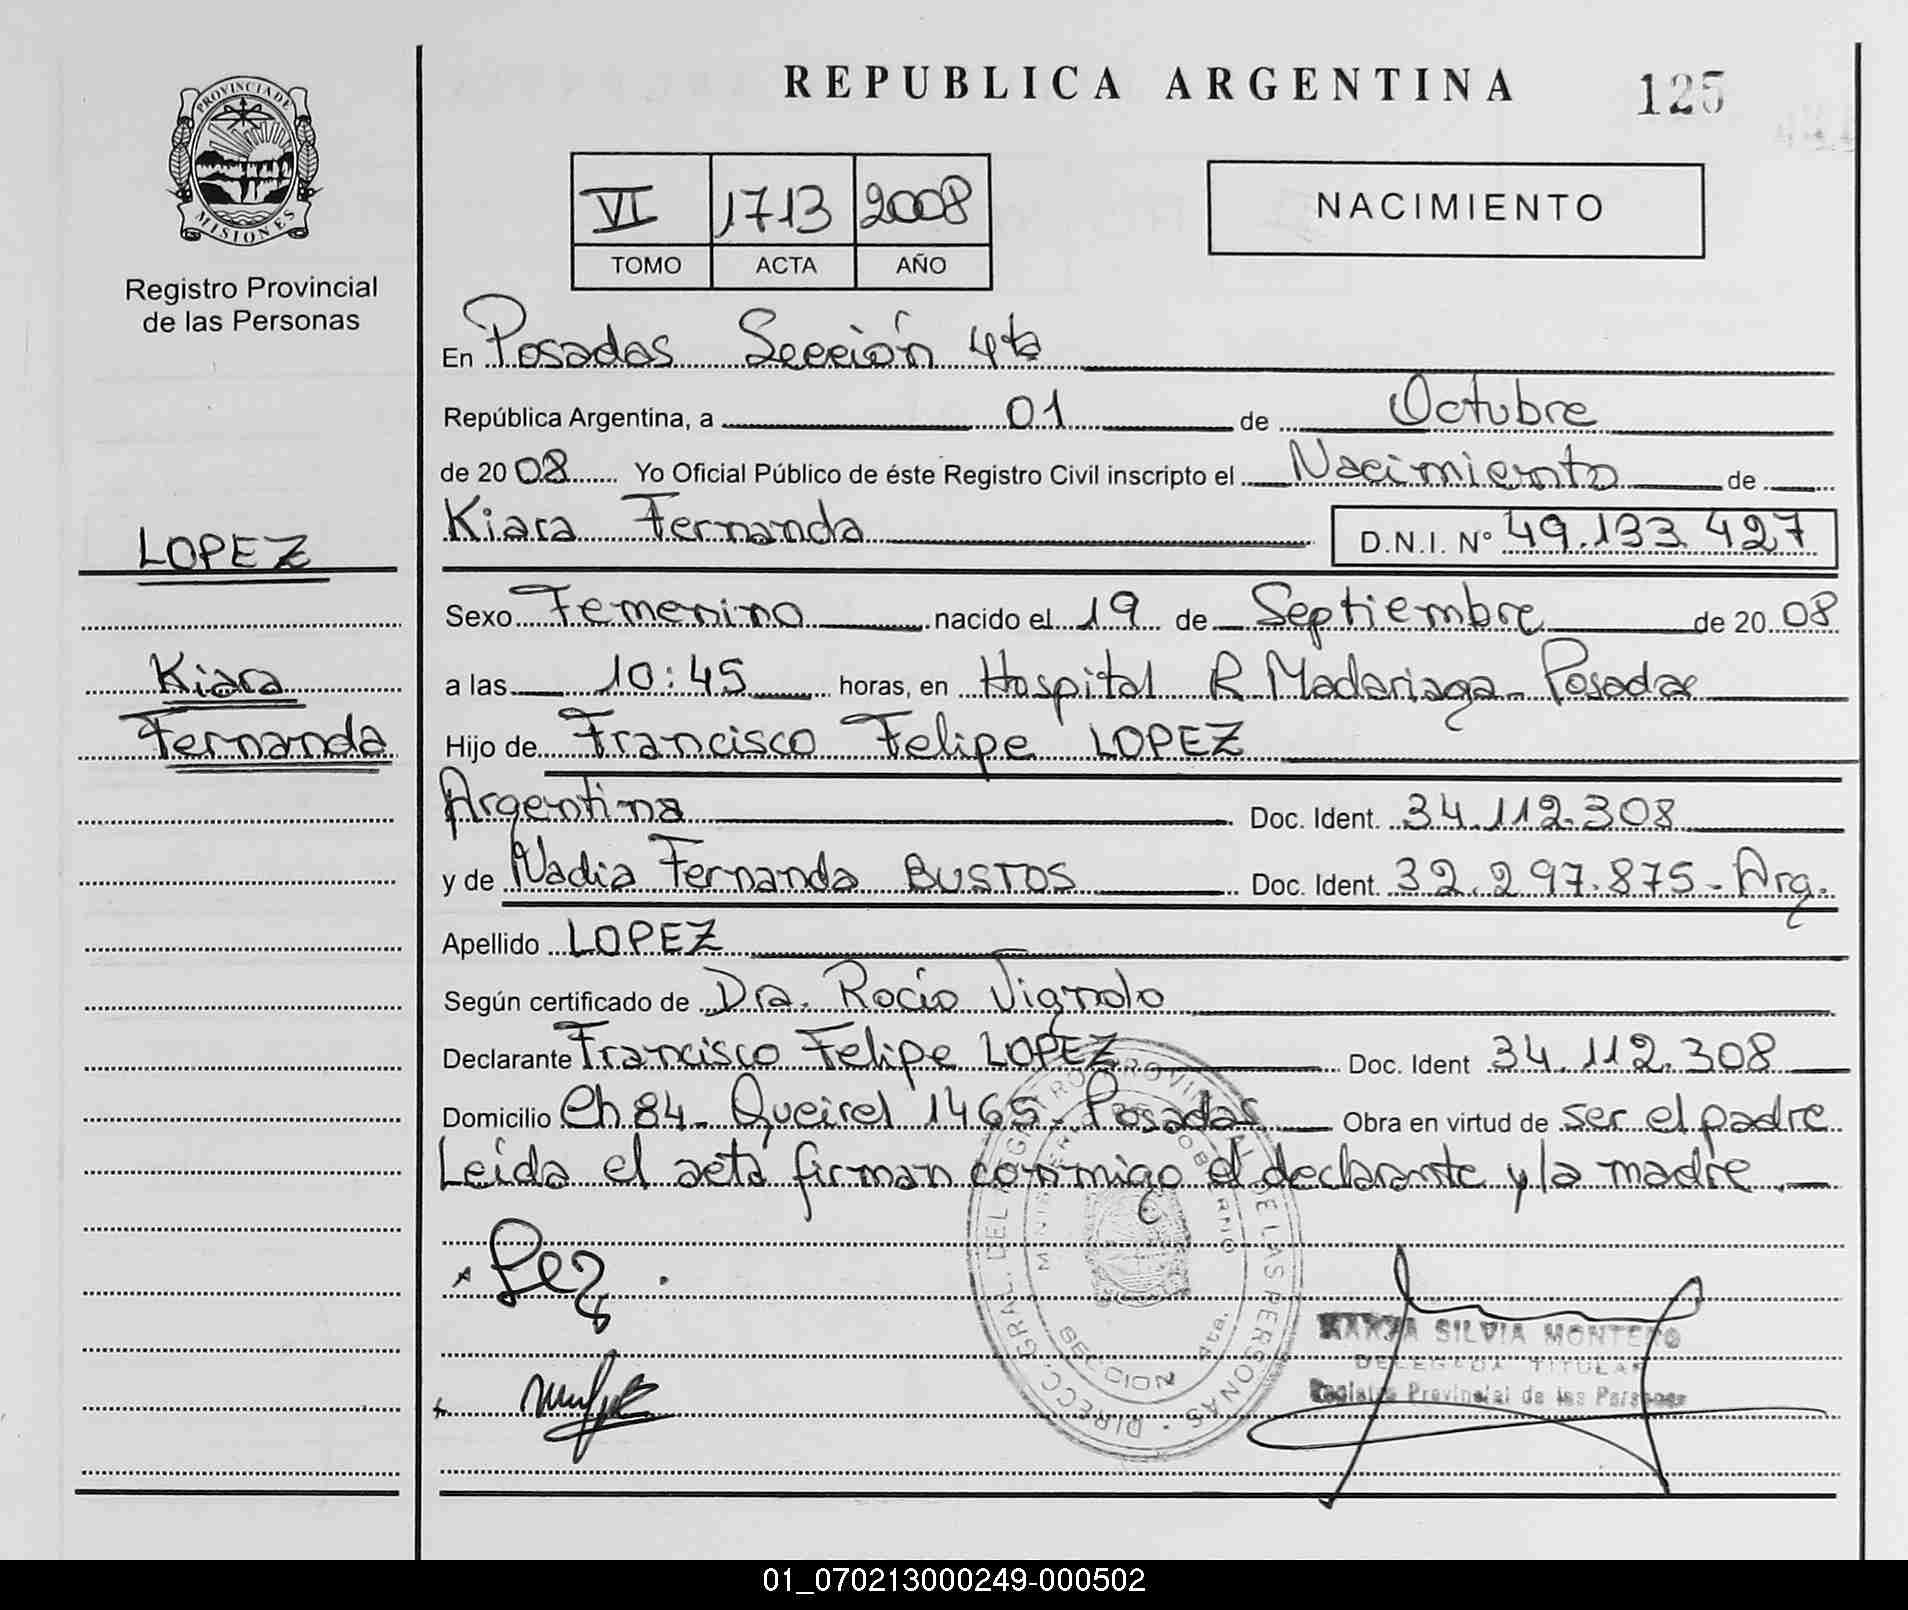 PROVINCIA DE
MISIONES
Registro Provincial
de las Personas
LOPEZ
Kiara
Fernanda
REPUBLICA ARGENTINA
125
VI 1713 2008
TOMO ACTA AÑO
NACIMIENTO
En Posadas Sección 4ta
República Argentina, a 01 de Octubre
de 20 08 Yo Oficial Público de éste Registro Civil inscripto el Nacimiento de
Kiara Fernanda D.N.I. N° 49.133.427
Sexo Femenino nacido el 19 de Septiembre de 20 08
a las 10:45 horas, en Hospital R Madariaga - Posadas
Hijo de Francisco Felipe LOPEZ
Argentina Doc. Ident. 34.112.308
y de Nadia Fernanda BUSTOS Doc. Ident. 32.297.875 - Arg.
Apellido LOPEZ
Según certificado de Dra. Rocio Vignolo
Declarante Francisco Felipe LOPEZ Doc. Ident 34.112.308
Domicilio Ch 84 - Queirel 1465 - Posadas Obra en virtud de ser el padre
Leída el acta firman conmigo el declarante y la madre.
DIRECC. GRAL. DEL REGISTRO PROVINCIAL DE LAS PERSONAS
SECCION 4ta.
SILVIA MONTERO
DELEGADA TITULAR
Registro Provincial de las Personas
01_070213000249-000502